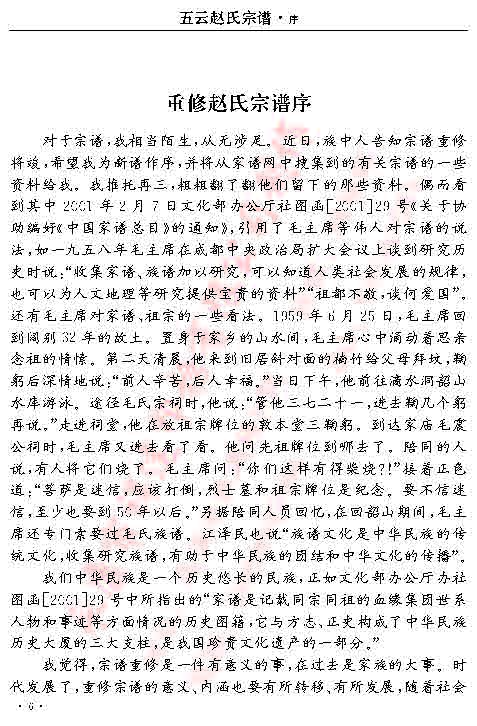 五云赵氏宗谱·序
重修赵氏宗谱序
对于宗谱,我相当陌生,从无涉足。近日,族中人告知宗谱重修
将竣,希望我为新谱作序,并将从家谱网中搜集到的有关宗谱的一些
资料给我。我推托再三,粗粗翻了翻他们留下的那些资料。偶而看
到其中2001年2月7日文化部办公厅社图函[2001]29号《关于协
助编好《中国家谱总目》的通知》,引用了毛主席等伟人对宗谱的说
法,如一九五八年毛主席在成都中央政治局扩大会议上谈到研究历
史时说:“收集家谱、族谱加以研究,可以知道人类社会发展的规律,
也可以为人文地理等研究提供宝贵的资料”“祖都不敬,谈何爱国”。
还有毛主席对家谱、祖宗的一些看法。1959年6月25日,毛主席回
到阔别32年的故土。置身于家乡的山水间,毛主席心中涌动着思亲
念祖的情愫。第二天清晨,他来到旧居斜对面的楠竹给父母拜坟,鞠
躬后深情地说:“前人辛苦,后人幸福。”当日下午,他前往滴水洞韶山
水库游泳。途径毛氏宗祠时,他说:“管他三七二十一,进去鞠几个躬
再说。”走进祠堂,他在放祖宗牌位的敦本堂三鞠躬。到达家庙毛震
公祠时,毛主席又进去看了看。他问先祖牌位到哪去了。陪同的人
说,有人将它们烧了。毛主席问:“你们这样有得柴烧?!”接着正色
道:“菩萨是迷信,应该打倒,烈士墓和祖宗牌位是纪念。要不信迷
信,至少也要到50年以后。”另据陪同人员回忆,在回韶山期间,毛主
席还专门索要过毛氏族谱。江泽民也说“族谱文化是中华民族的传
统文化,收集研究族谱,有助于中华民族的团结和中华文化的传播”。
我们中华民族是一个历史悠长的民族,正如文化部办公厅办社
图函[2001]29号中所指出的“家谱是记载同宗同祖的血缘集团世系
人物和事迹等方面情况的历史图籍,它与方志、正史构成了中华民族
历史大厦的三大支柱,是我国珍贵文化遗产的一部分。”
我觉得,宗谱重修是一件有意义的事,在过去是家族的大事。时
代发展了,重修宗谱的意义、内涵也要有所转移、有所发展,随着社会
·6·